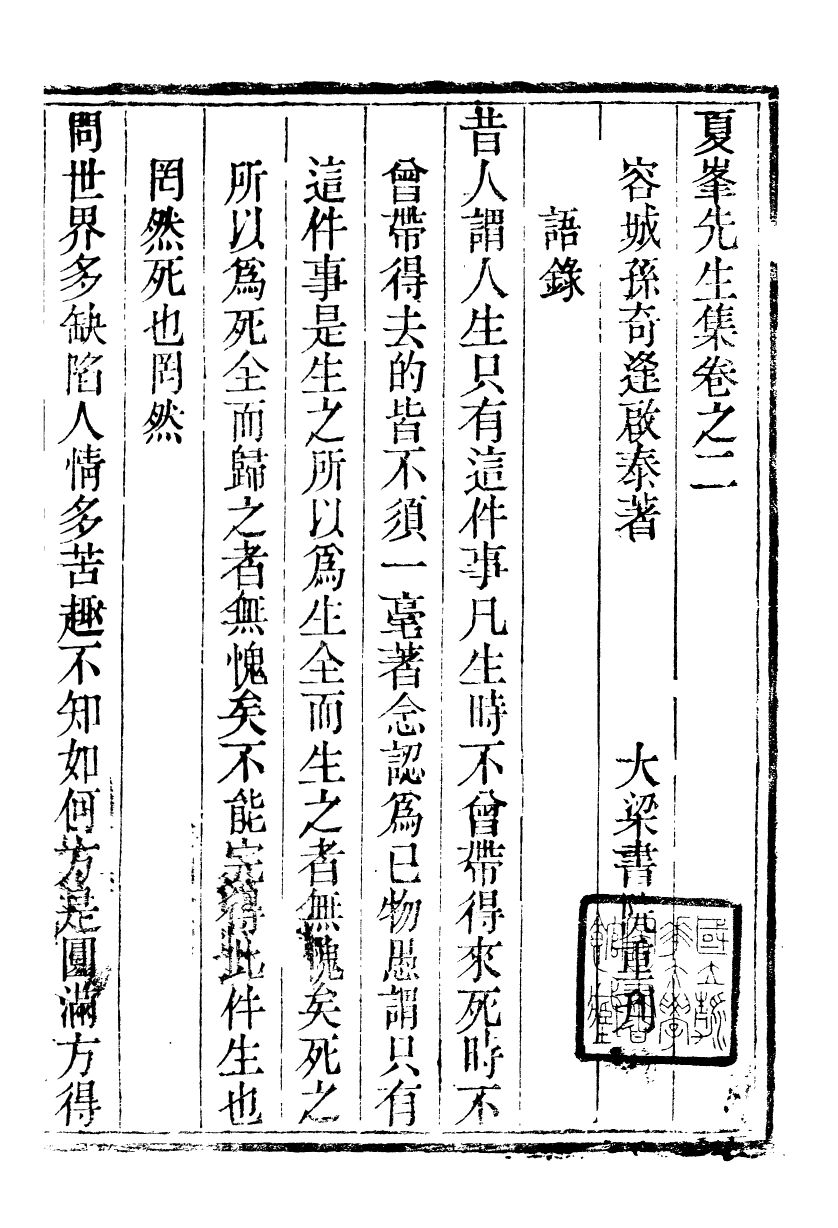 夏峯先生集卷之二
容城孫奇逢啟泰著　大梁書院重刊
語錄
昔人謂人生只有這件事凡生時不曾帶得來死時不
曾帶得去的皆不須一毫著念認爲已物愚謂只有
這件事是生之所以爲生全而生之者無愧矣死之
所以爲死全而歸之者無愧矣不能完得此件生也
罔然死也罔然
問世界多缺陷人情多苦趣不知如何方是圓滿方得
國立清
華大學